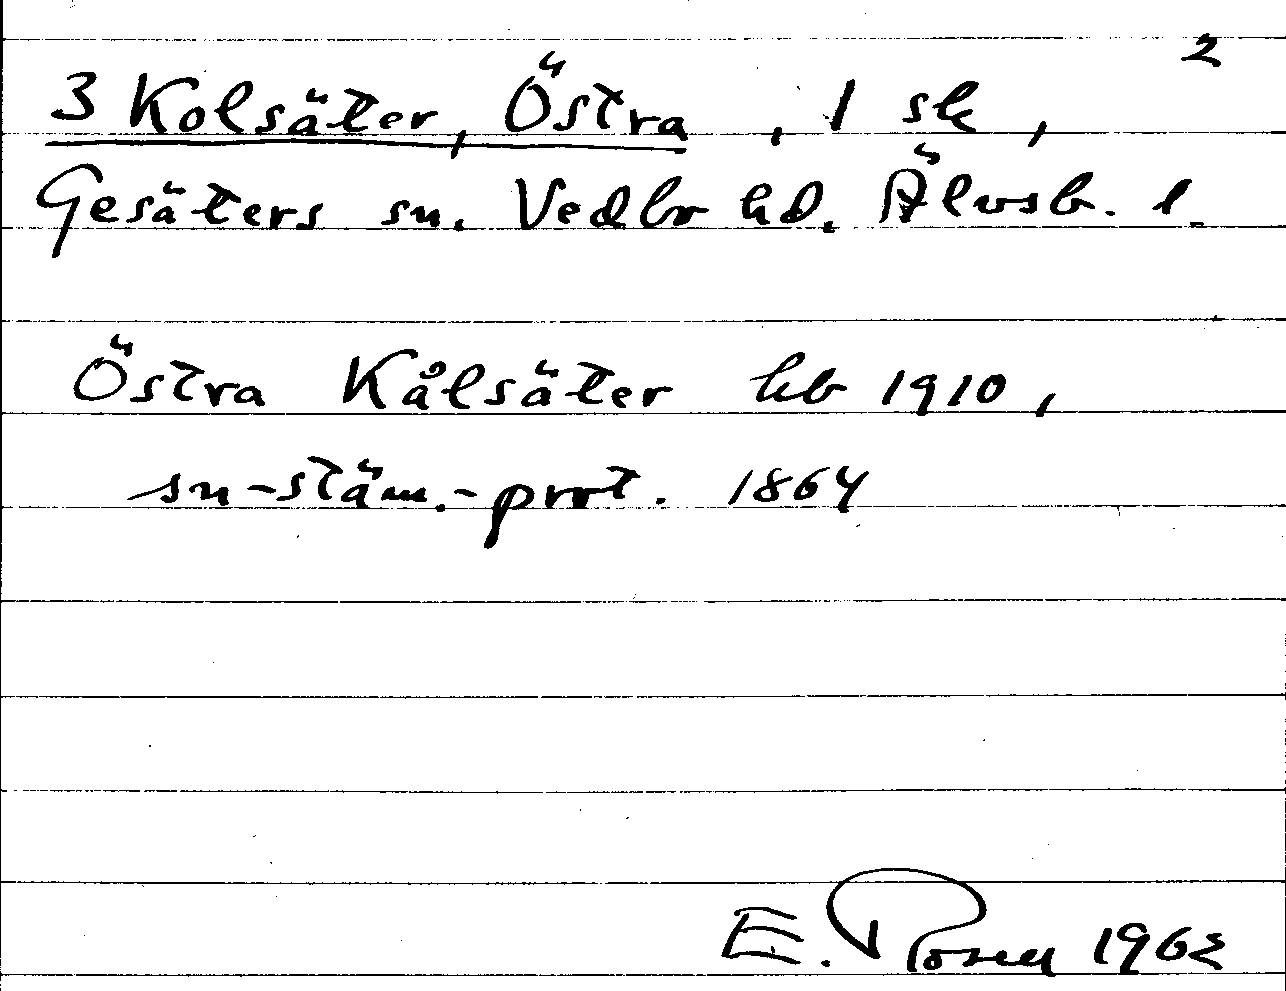 2
3 Kolsäter, Östra, 1 sk,
Gesäters sn. Vedbo hd. Älvsb. l.
Östra Kålsäter hb 1910,
sn-stäm.-prot. 1864
E. Rosell 1962